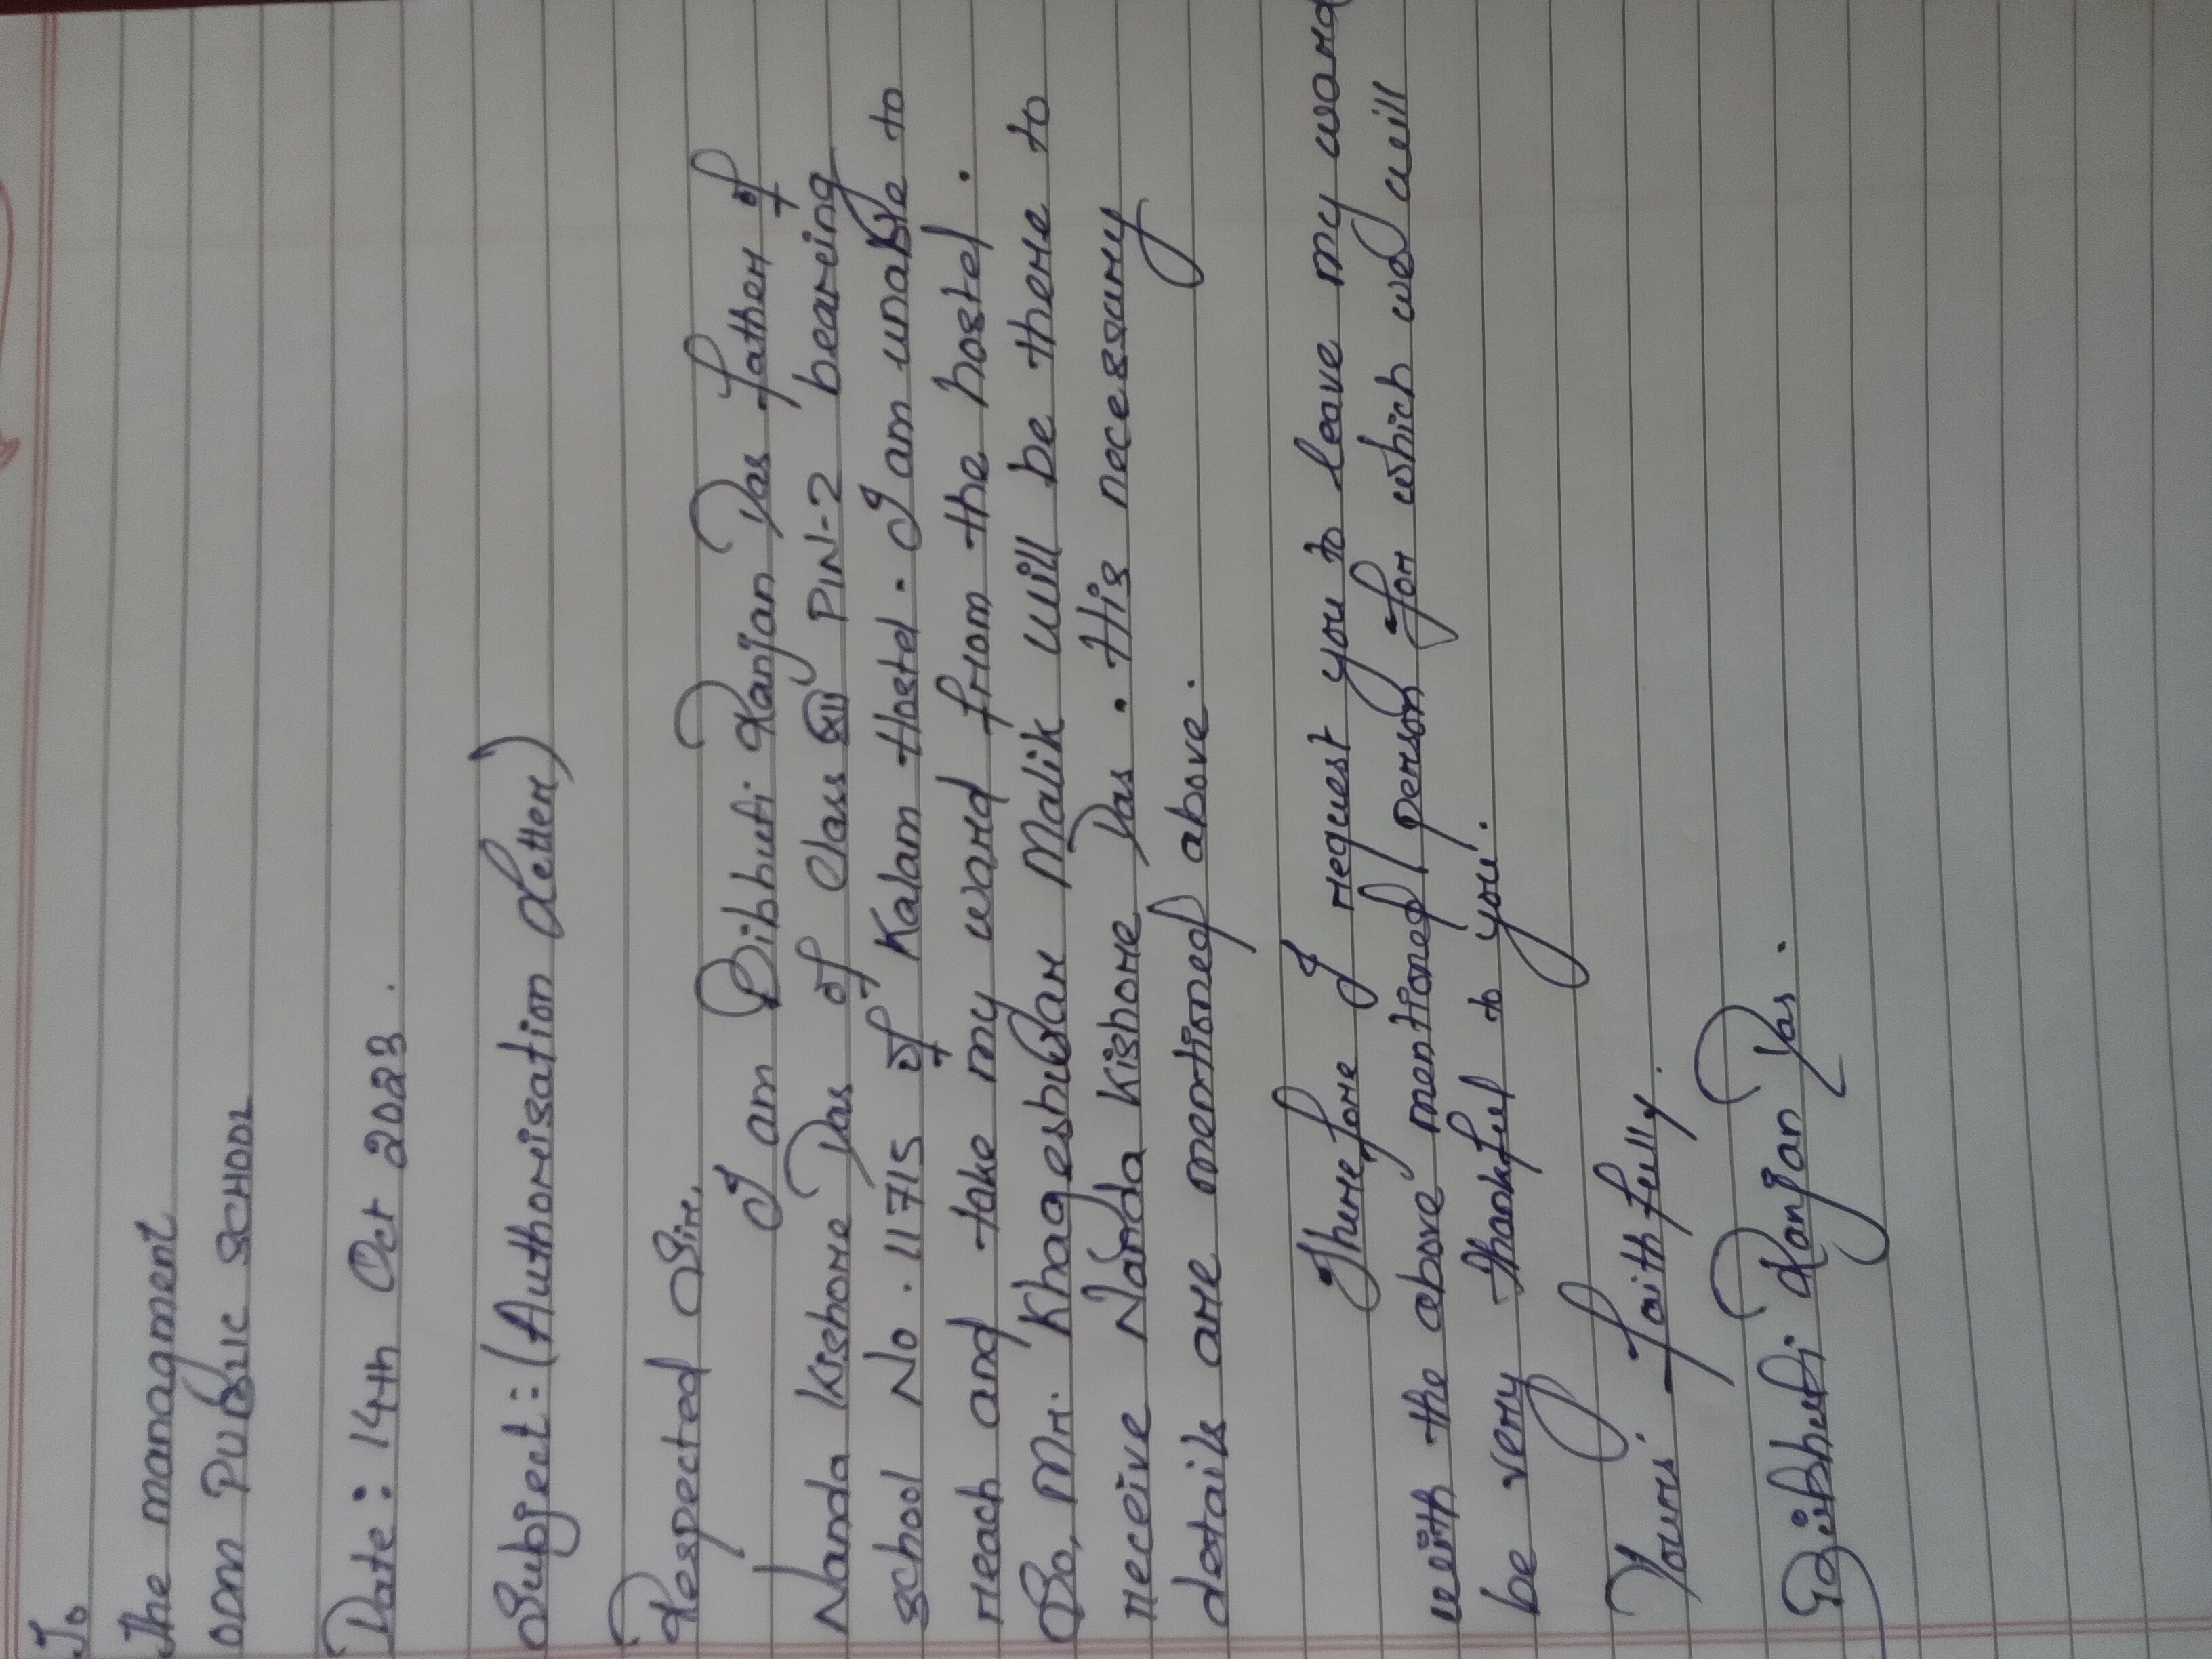 To
The managment
ODM PUBLIC SCHOOL
Date : 14th Oct 2023.
Subject:- (Authorisation Letter)
Respected Sir,
I am Bibhuti Ranjan Das father of
Nanda Kishore Das of Class PIN-2 bearing
school No. 11715 of Kalam Hostel. I am unable to
reach and take my ward from the hostel.
So, Mr. Khageshwar Malik will be there to
receive Nanda Kishore Das. His necessary
details are mentioned above.
Therefore I request you to leave my ward
with the above mentioned person for which we will
be very thankful to you.
Yours' faithfully.
Bibhuti Ranjan Das.